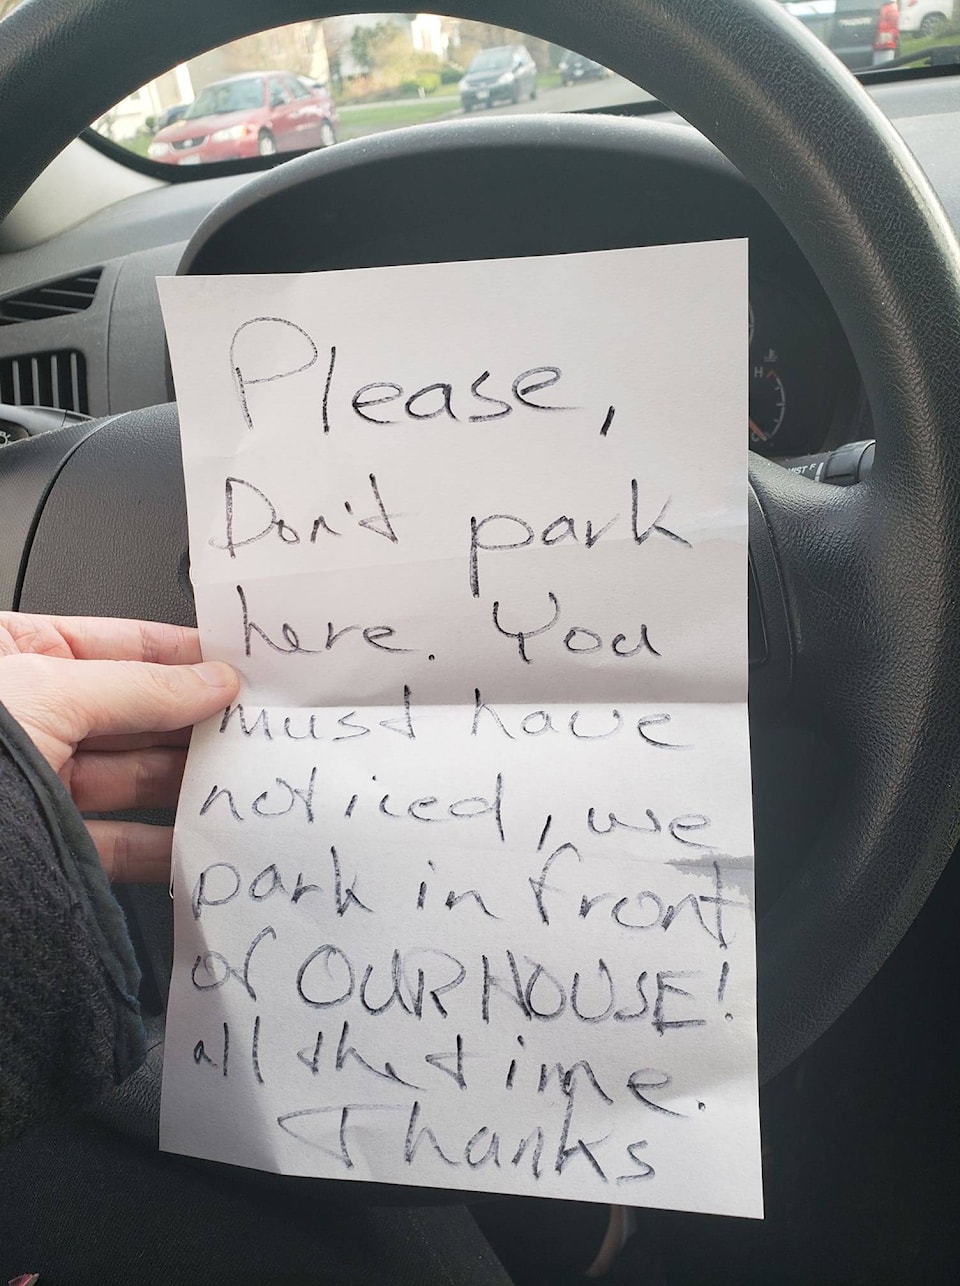 Please,
Don't park
here. You
must have
noticed, we
park in front
of OUR HOUSE!
all the time.
Thanks
H
MIST F